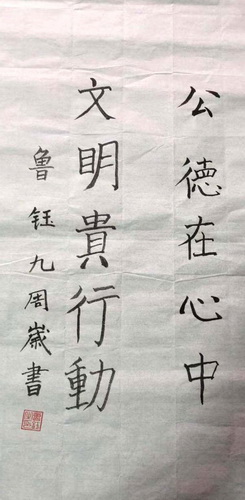 公德在心中
文明貴行動
魯鈺九周歲書